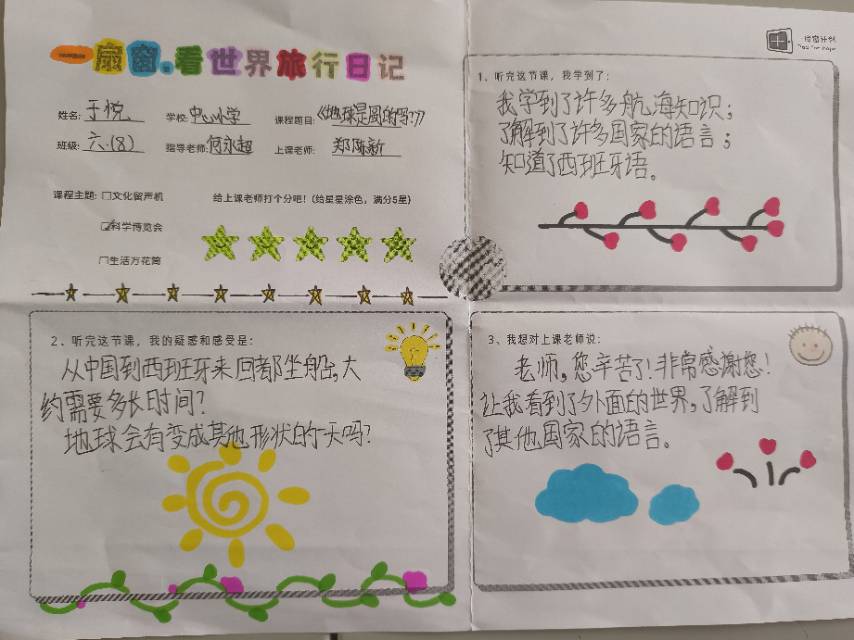 一扇窗，看世界旅行日记
姓名: 于悦 学校: 中心小学 课程题目:《地球是圆的吗??》
班级: 六.(8) 指导老师: 何永超 上课老师: 郑陈新
课程主题: □文化留声机 给上课老师打个分吧!(给星星涂色，满分5星)
☑科学博览会
□生活万花筒
1、听完这节课，我学到了:
我学到了许多航海知识；
了解到了许多国家的语言；
知道了西班牙语。
2、听完这节课，我的疑惑和感受是:
从中国到西班牙来回都坐船，大
约需要多长时间？
地球会有变成其他形状的一天吗？
3、我想对上课老师说:
老师，您辛苦了！非常感谢您！
让我看到了外面的世界，了解到
了其他国家的语言。